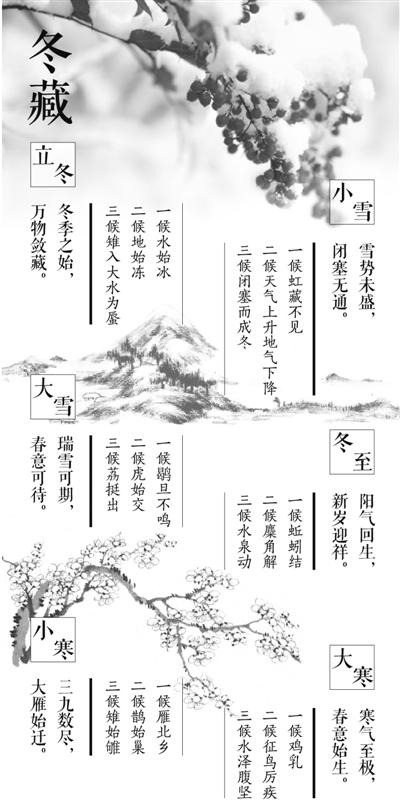 冬藏
立冬
冬季之始，
万物敛藏。
一候水始冰
二候地始冻
三候雉入大水为蜃
小雪
雪势未盛，
闭塞无通。
一候虹藏不见
二候天气上升地气下降
三候闭塞而成冬
大雪
瑞雪可期，
春意可待。
一候鹖旦不鸣
二候虎始交
三候荔挺出
冬至
阳气回生，
新岁迎祥。
一候蚯蚓结
二候麋角解
三候水泉动
小寒
三九数尽，
大雁始迁。
一候雁北乡
二候鹊始巢
三候雉始雊
大寒
寒气至极，
春意始生。
一候鸡乳
二候征鸟厉疾
三候水泽腹坚